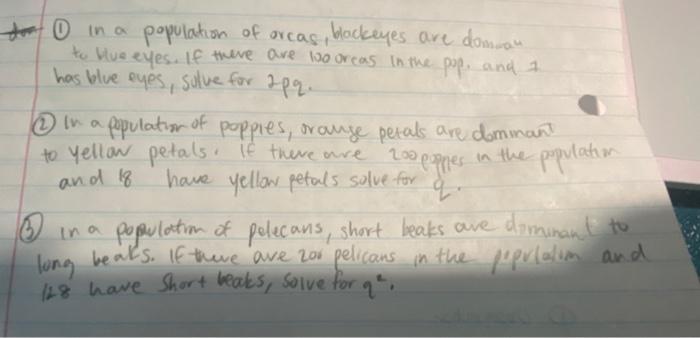 ① in a population of orcas, blackeyes are dominan
to blue eyes. If there are 100 orcas in the pop. and 1
has blue eyes, solve for 2pq.
② In a population of poppies, orange petals are dominant
to yellow petals. If there are 200 poppies in the population
and 18 have yellow petals solve for q.
③ in a population of pelecans, short beaks are dominant to
long beaks. If there are 200 pelicans in the population and
128 have short beaks, solve for q².